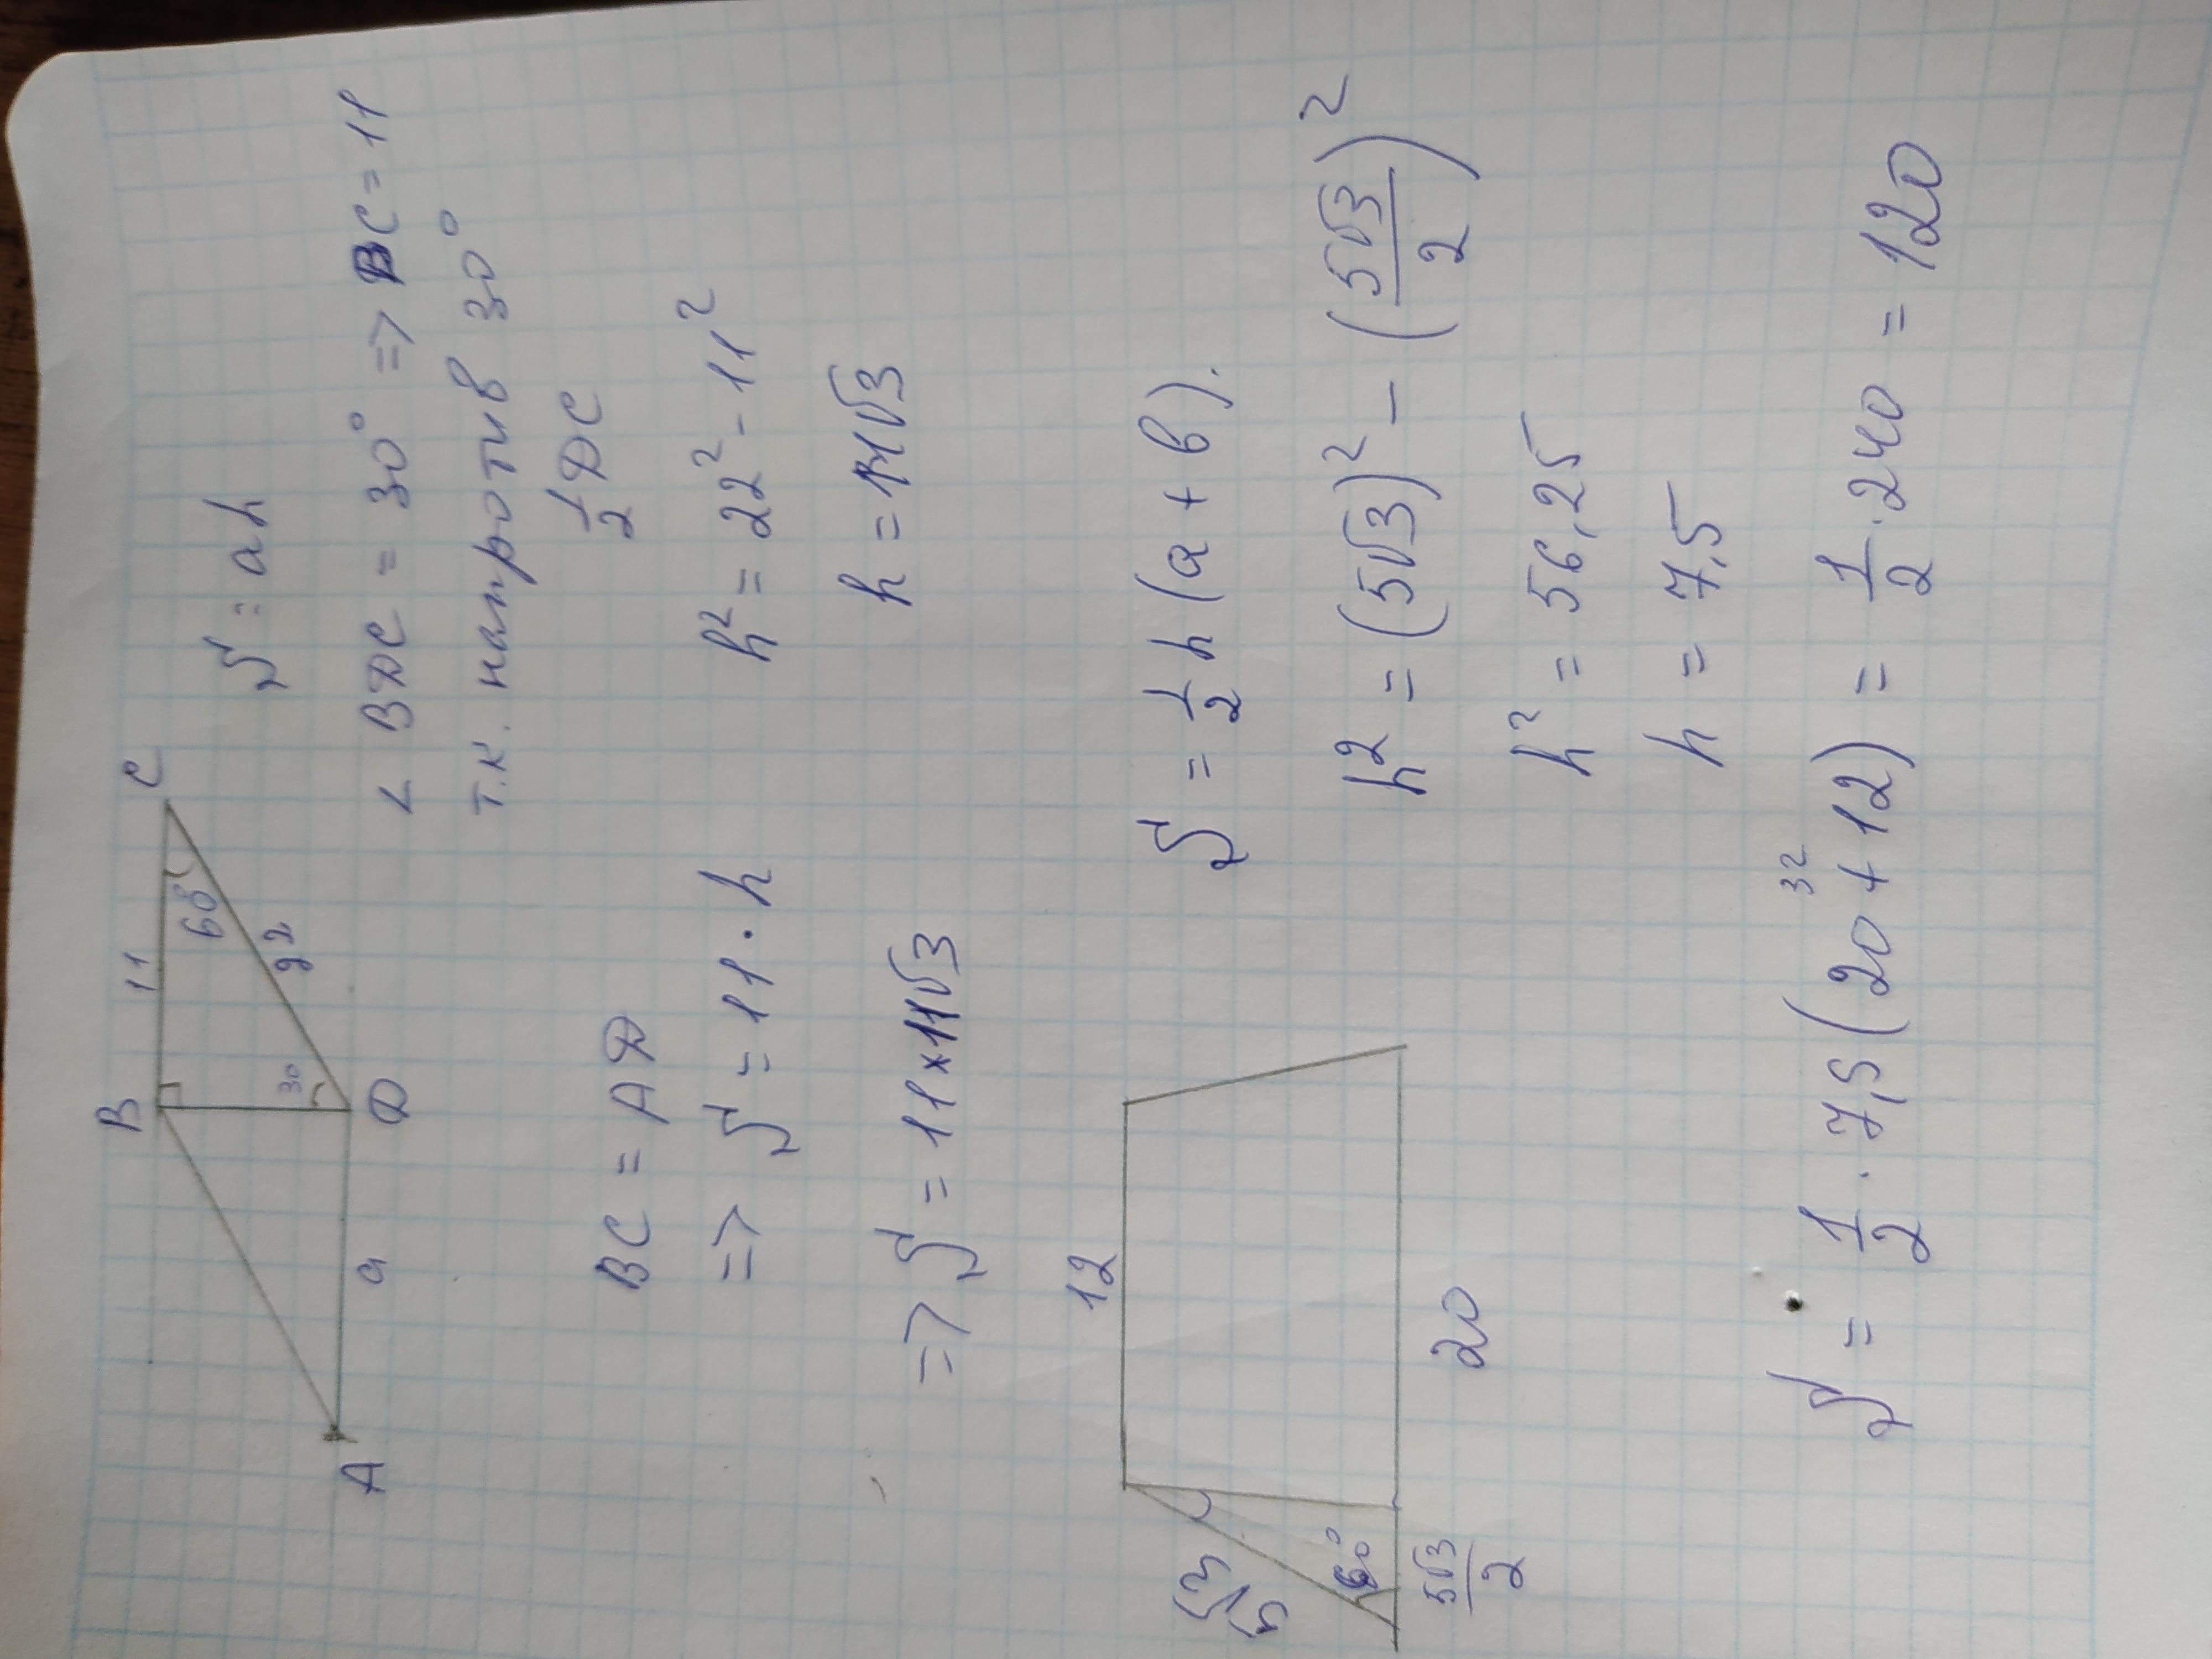 B 11 C
60°
22
30
A a D
S = ah
∠ BDC = 30° => BC = 11
т.к. напротив 30°
1/2 DC
BC = AD
h² = 22² - 11²
=> S = 11 · h
h = 11√3
=> S = 11 × 11√3
12
5√3
60°
5√3/2
20
S = 1/2 h (a + b).
h² = (5√3)² - (5√3/2)²
h² = 56,25
h = 7,5
32
S = 1/2 · 7,5 (20 + 12) = 1/2 · 240 = 120